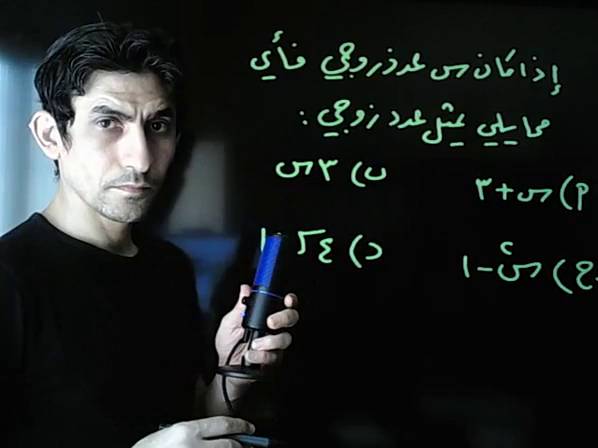 إذا كان س عدد زوجي فأي
مما يلي يمثل عدد زوجي :
أ) س + ٣
ب) ٣ س
ج) س٢ - ١
د)